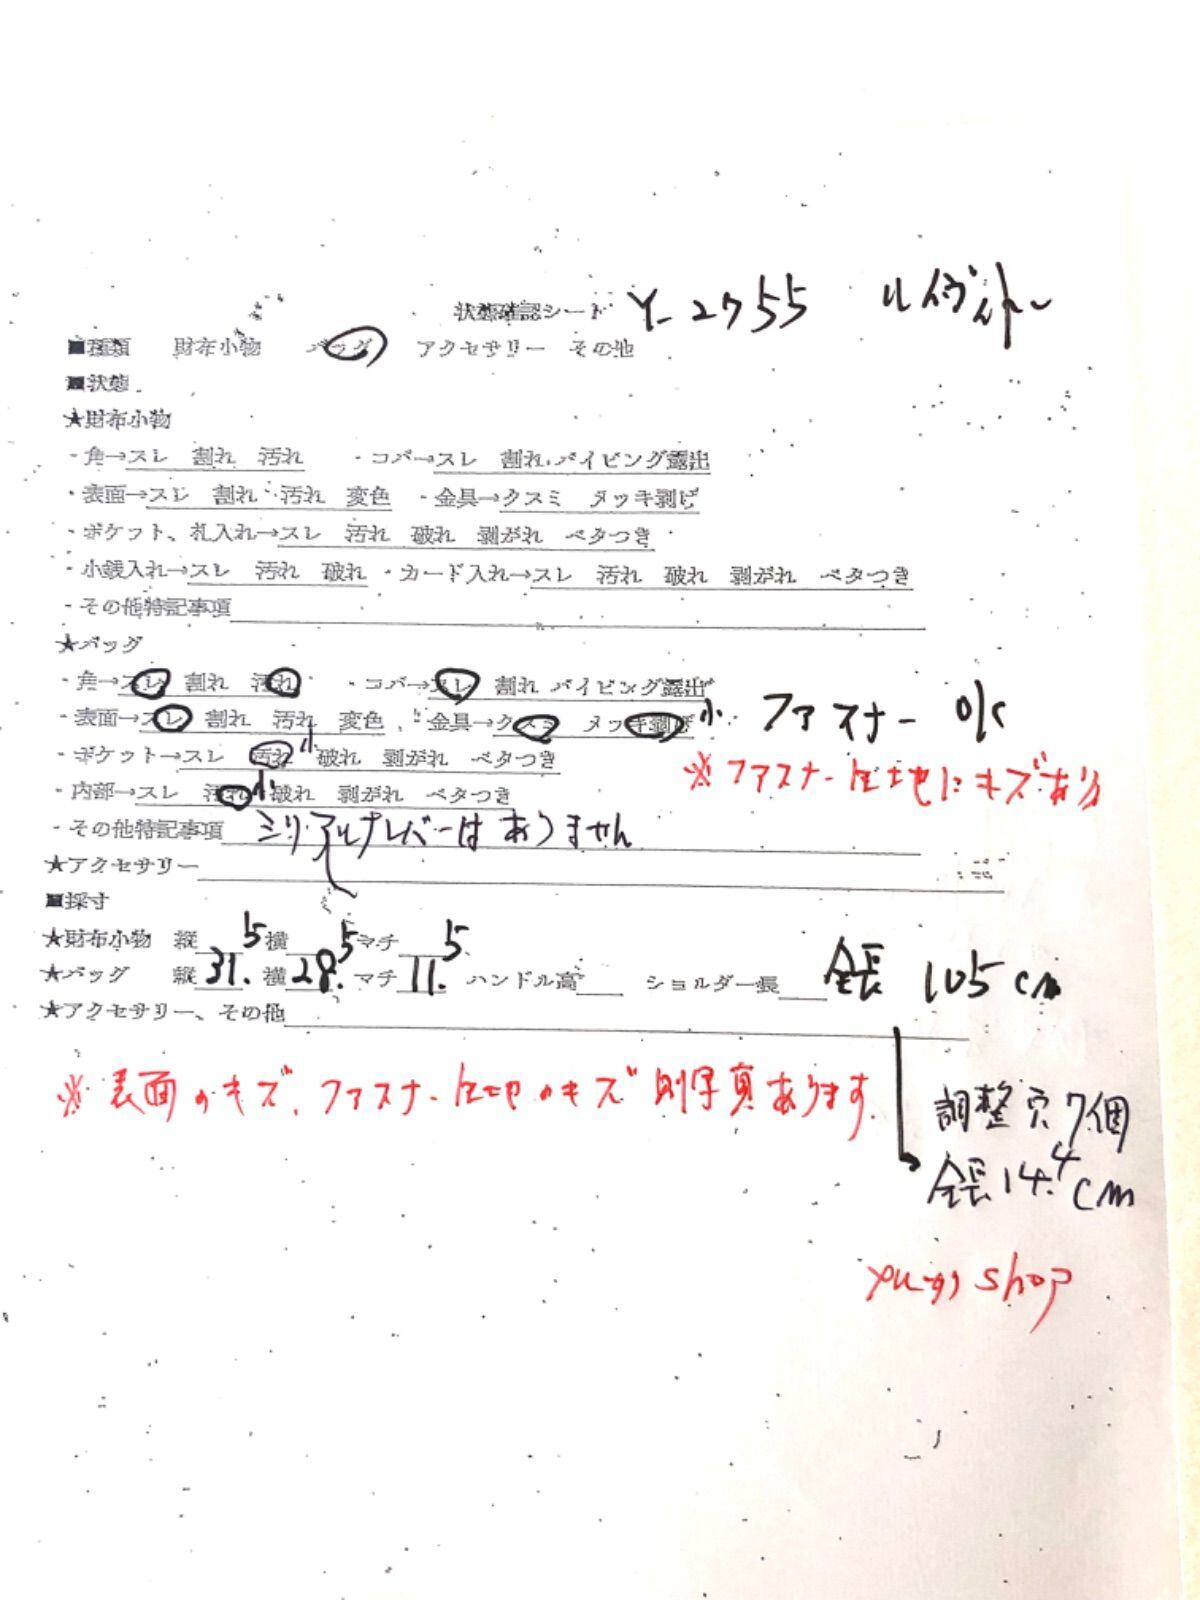 状態確認シート Y-2755 ルイヴィトン
■種類 財布小物 バッグ アクセサリー その他
■状態
★財布小物
・角→スレ 割れ 汚れ ・コバ→スレ 割れ パイピング露出
・表面→スレ 割れ 汚れ 変色 ・金具→クスミ メッキ剥げ
・ポケット、札入れ→スレ 汚れ 破れ 剥がれ ベタつき
・小銭入れ→スレ 汚れ 破れ ・カード入れ→スレ 汚れ 破れ 剥がれ ベタつき
・その他特記事項
★バッグ
・角→スレ 割れ 汚れ ・コバ→スレ 割れ パイピング露出
・表面→スレ 割れ 汚れ 変色 ・金具→クスミ メッキ剥げ 小 ファスナー O/K
・ポケット→スレ 汚れ 小 破れ 剥がれ ベタつき
※ファスナー 生地にキズあり
・内部→スレ 汚れ 小 破れ 剥がれ ベタつき
・その他特記事項 シリアルナンバーはありません
★アクセサリー
■採寸
★財布小物 縦 横 マチ
★バッグ 縦31.5 横28.5 マチ11.5 ハンドル高 ショルダー長 全長 105cm
★アクセサリー、その他
※表面のキズ、ファスナー生地のキズ 別写真あります.
調整穴7個
全長14.4cm
shop